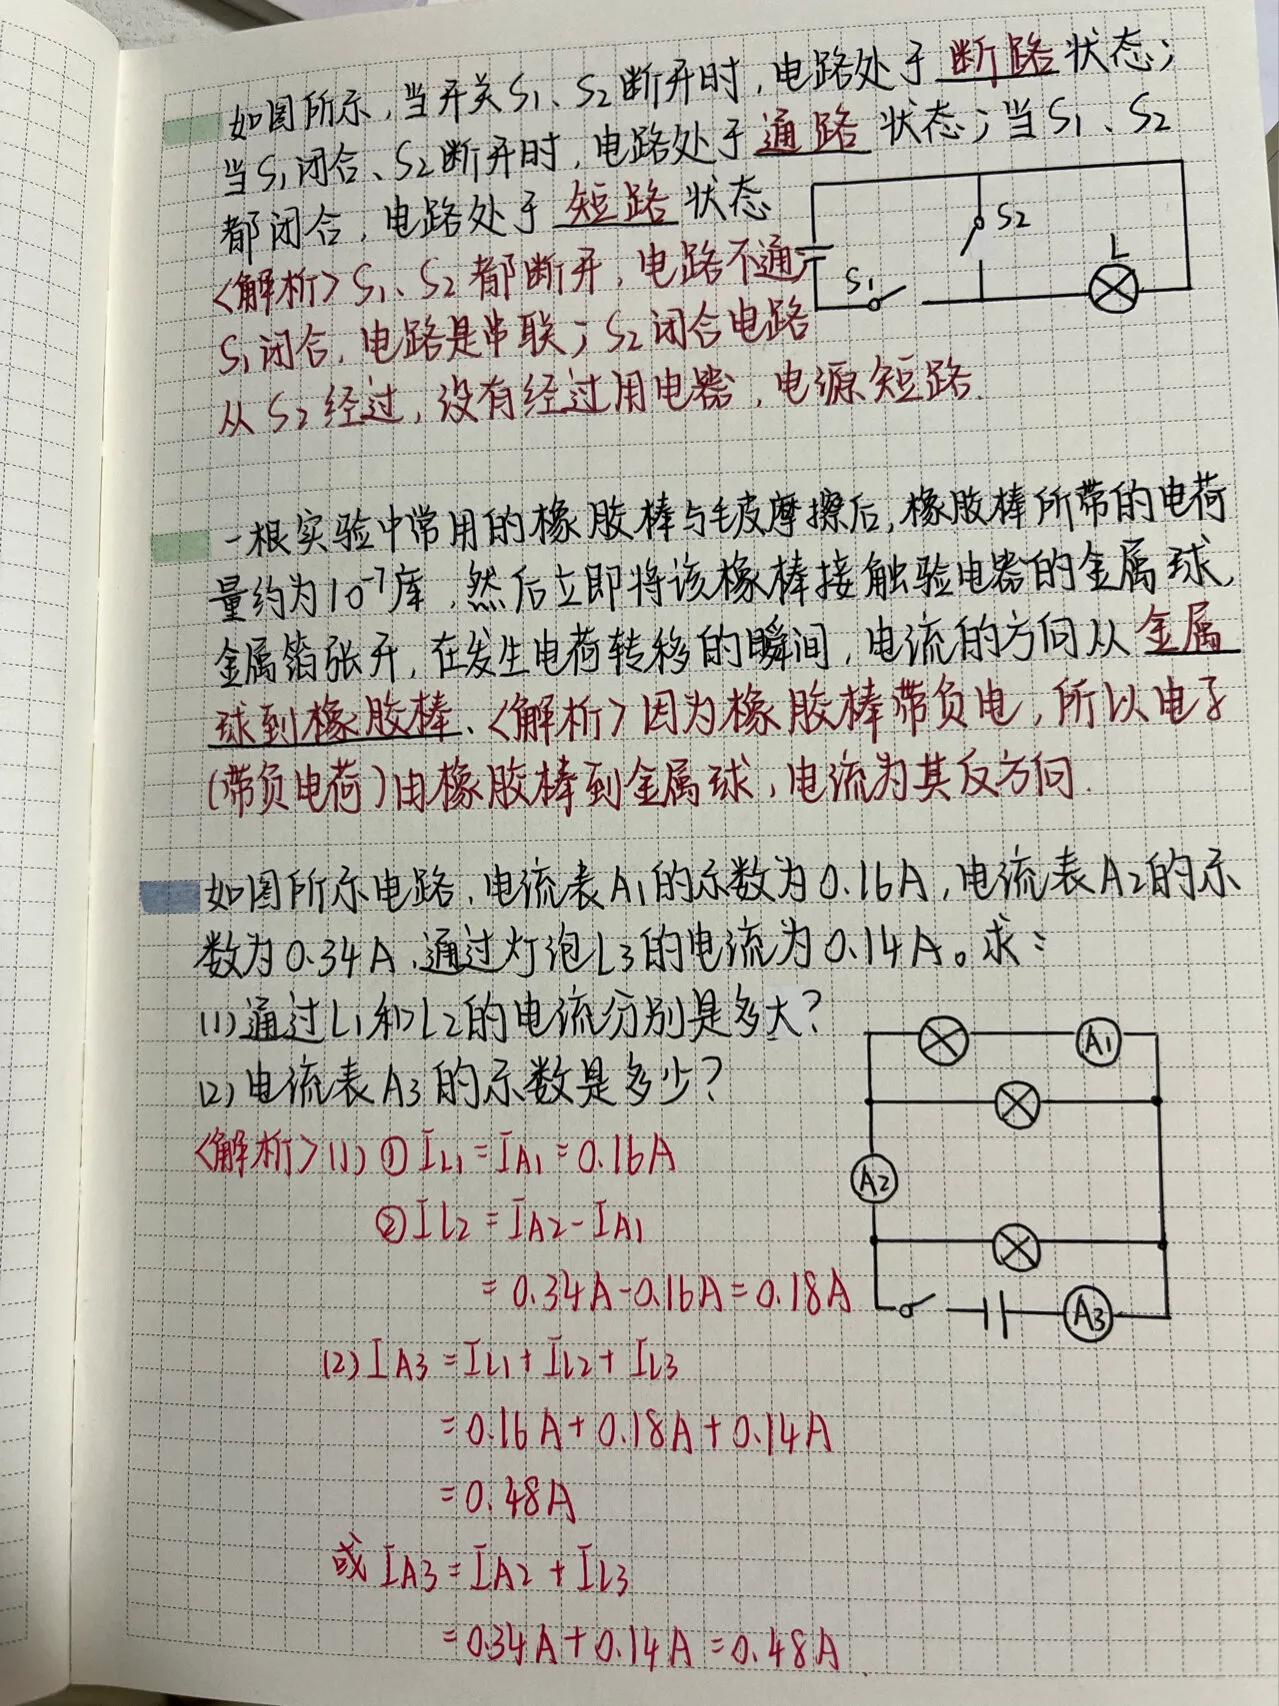 如图所示,当开关S1、S2断开时,电路处于断路状态;
当S1闭合、S2断开时,电路处于通路状态;当S1、S2
都闭合,电路处于短路状态
S2
L
S1
<解析>S1、S2都断开,电路不通;
S1闭合,电路是串联;S2闭合电路
从S2经过,没有经过用电器,电源短路.
一根实验中常用的橡胶棒与毛皮摩擦后,橡胶棒所带的电荷
量约为10⁻⁷库,然后立即将该橡棒接触验电器的金属球,
金属箔张开,在发生电荷转移的瞬间,电流的方向从金属
球到橡胶棒、<解析>因为橡胶棒带负电,所以电子
(带负电荷)由橡胶棒到金属球,电流为其反方向.
如图所示电路,电流表A1的示数为0.16A,电流表A2的示
数为0.34A,通过灯泡L3的电流为0.14A。求:
(1)通过L1和L2的电流分别是多大?
(2)电流表A3的示数是多少?
A1
A2
A3
<解析>(1)①IL1=IA1=0.16A
②IL2=IA2-IA1
=0.34A-0.16A=0.18A
(2)IA3=IL1+IL2+IL3
=0.16A+0.18A+0.14A
=0.48A
或IA3=IA2+IL3
=0.34A+0.14A=0.48A